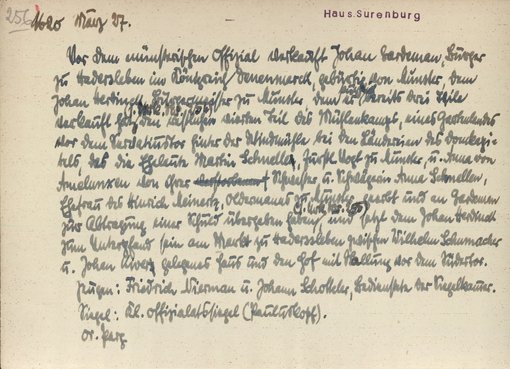 256
1620 März 27.
Haus. Surenburg
Vor dem münsterischen Offizial verkauft Johan Gardeman, Bürger
zu Hadersleben im Königreich Denenmarck, gebürtig von Munster, dem
Johan Herdinck, Bürgermeister zu Munster, dem er bereits drei Theile
verkauft hat, den letzten vierten Teil des Mühlenkamps, eines Gartenlandes
vor dem Servatiustor hinter der Windmühle bei den Ländereien des Domkapi-
tels, das die Eheleute Martin Schnellen, Vogt zu Munster, u. Anna von
Amelunxen von Ihrer Schwester u. Schwägerin Anna Schnellen,
Ehefrau des Hinrich Meinertz, Oldermanns zu Munster geerbt und an Gardeman
zur Abtragung einer Schuld übergeben haben, und setzt dem Johan Herdinck
zum Unterpfand sein am Markt zu Hadersleben zwischen Wilhelm Schumacher
u. Johan gelegenes Haus und den Hof mit Stallung vor dem Südertor.
Zeugen: Friedrich Nierman u. Johann Schotteler, Bedienstete der Siegelkammer.
Siegel: Kl. Offizialatssiegel (Pauluskopf).
Or. Perg.